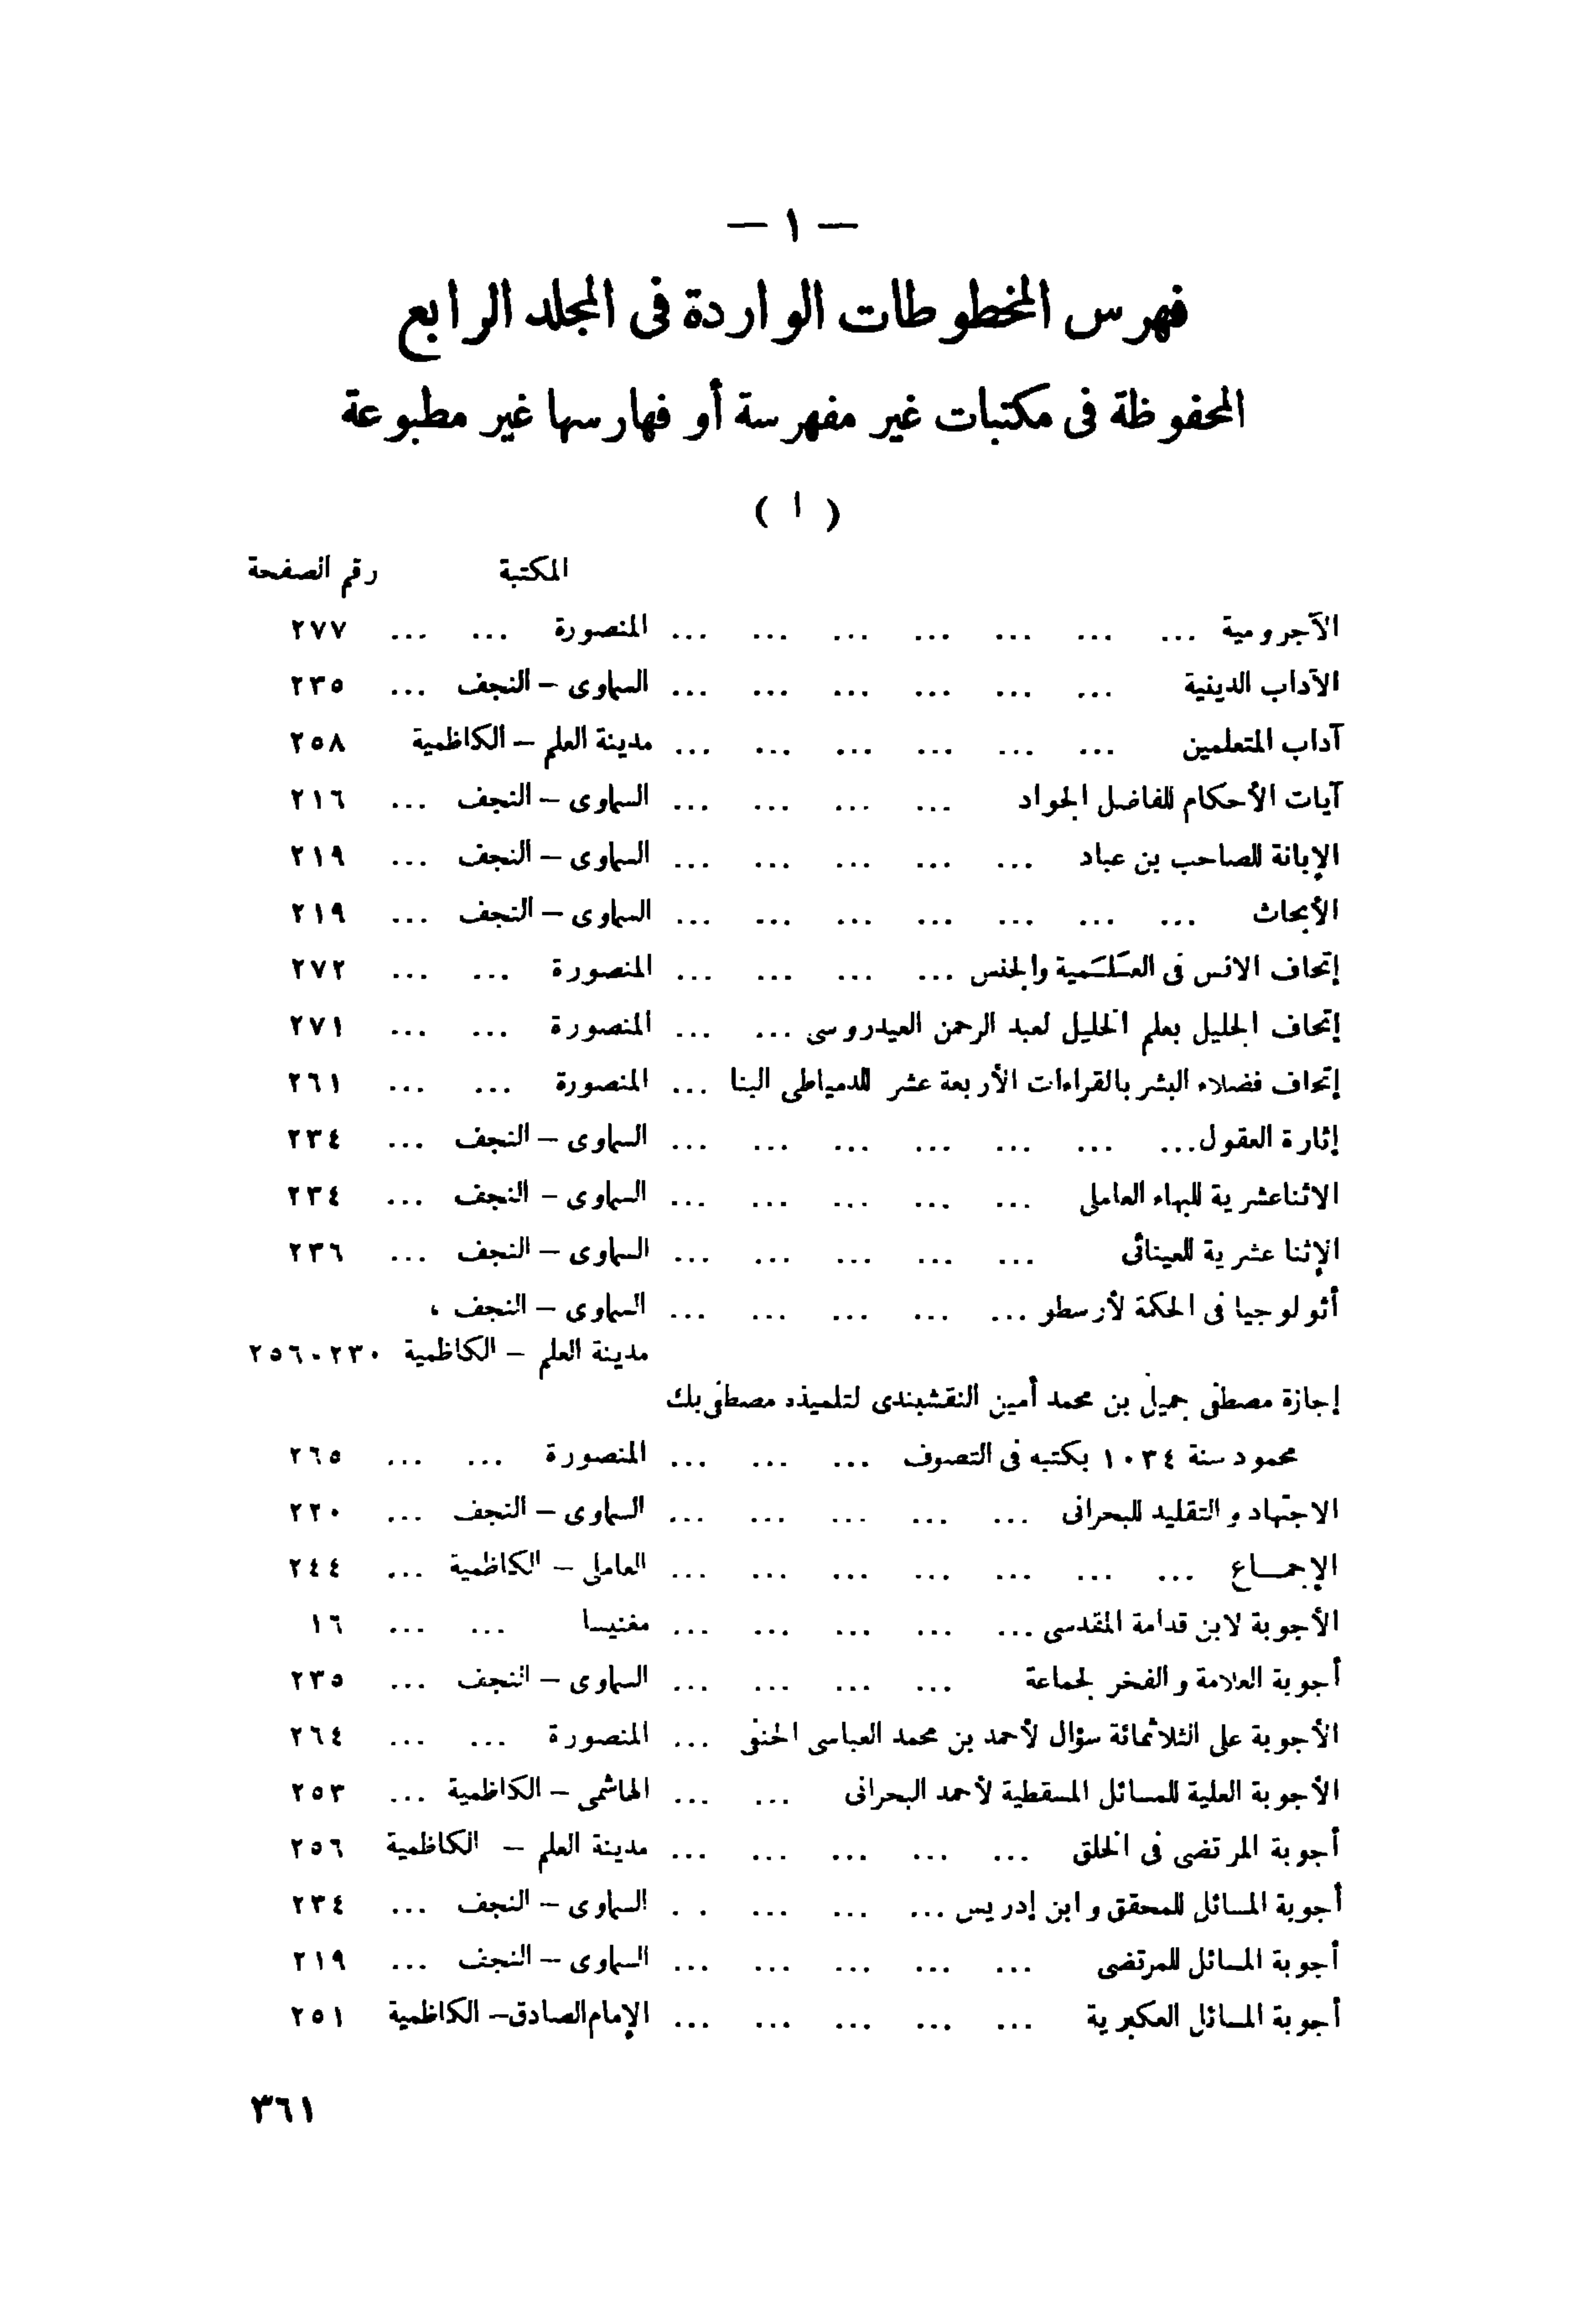 — ١ —
فهرس المخطوطات الواردة فى المجلد الرابع
المحفوظة فى مكتبات غير مفهرسة أو فهارسها غير مطبوعة
( ا )
المكتبة رقم الصفحة
الآجرومية ... ... ... ... ... ... ... المنصورة ... ... ٢٧٧
الآداب الدينية ... ... ... ... ... ... السماوى – النجف ... ٢٣٥
آداب المتعلمين ... ... ... ... ... ... مدينة العلم – الكاظمية ٢٥٨
آيات الأحكام للفاضل الجواد ... ... ... ... السماوى – النجف ... ٢١٦
الإبانة للصاحب بن عباد ... ... ... ... ... السماوى – النجف ... ٢١٩
الأبحاث ... ... ... ... ... ... ... السماوى – النجف ... ٢١٩
إتحاف الانس فى العلمية والجنس ... ... ... ... المنصورة ... ... ٢٧٢
إتحاف الجليل بعلم الخليل لعبد الرحمن العيدروسى ... ... المنصورة ... ... ٢٧١
إتحاف فضلاء البشر بالقراءات الأربعة عشر للدمياطى البنا ... المنصورة ... ... ٢٦١
إثارة العقول ... ... ... ... ... ... ... السماوى – النجف ... ٢٣٤
الاثناعشرية للبهاء العاملى ... ... ... ... ... السماوى – النجف ... ٢٣٤
الإثنا عشرية للعينائى ... ... ... ... ... السماوى – النجف ... ٢٣٦
أثولوجيا فى الحكمة لأرسطو ... ... ... ... ... السماوى – النجف ،
مدينة العلم – الكاظمية ٢٣٠-٢٥٦
إجازة مصطفى جميل بن محمد أمين النقشبندى لتلميذه مصطفى بك
محمود سنة ١٠٣٤ بكتبه فى التصوف ... ... ... المنصورة ... ... ٢٦٥
الاجتهاد والتقليد للبحرانى ... ... ... ... ... السماوى – النجف ... ٢٢٠
الإجمـــاع ... ... ... ... ... ... ... العاملى – الكاظمية ... ٢٤٤
الأجوبة لابن قدامة المقدسى ... ... ... ... ... مغنيسا ... ... ١٦
أجوبة العلامة والفخر لجماعة ... ... ... ... السماوى – النجف ... ٢٣٥
الأجوبة على الثلاثمائة سؤال لأحمد بن محمد العباسى الحنفى ... المنصورة ... ... ٢٦٤
الأجوبة العلية للمسائل المسقطية لأحمد البحرانى ... ... الهاشمى – الكاظمية ... ٢٥٣
أجوبة المرتضى فى الخلق ... ... ... ... ... مدينة العلم – الكاظمية ٢٥٦
أجوبة المسائل للمحقق وابن إدريس ... ... ... . . السماوى – النجف ... ٢٣٤
أجوبة المسائل للمرتضى ... ... ... ... ... السماوى – النجف ... ٢١٩
أجوبة المسائل العكبرية ... ... ... ... ... الإمام الصادق – الكاظمية ٢٥١
٣٦١